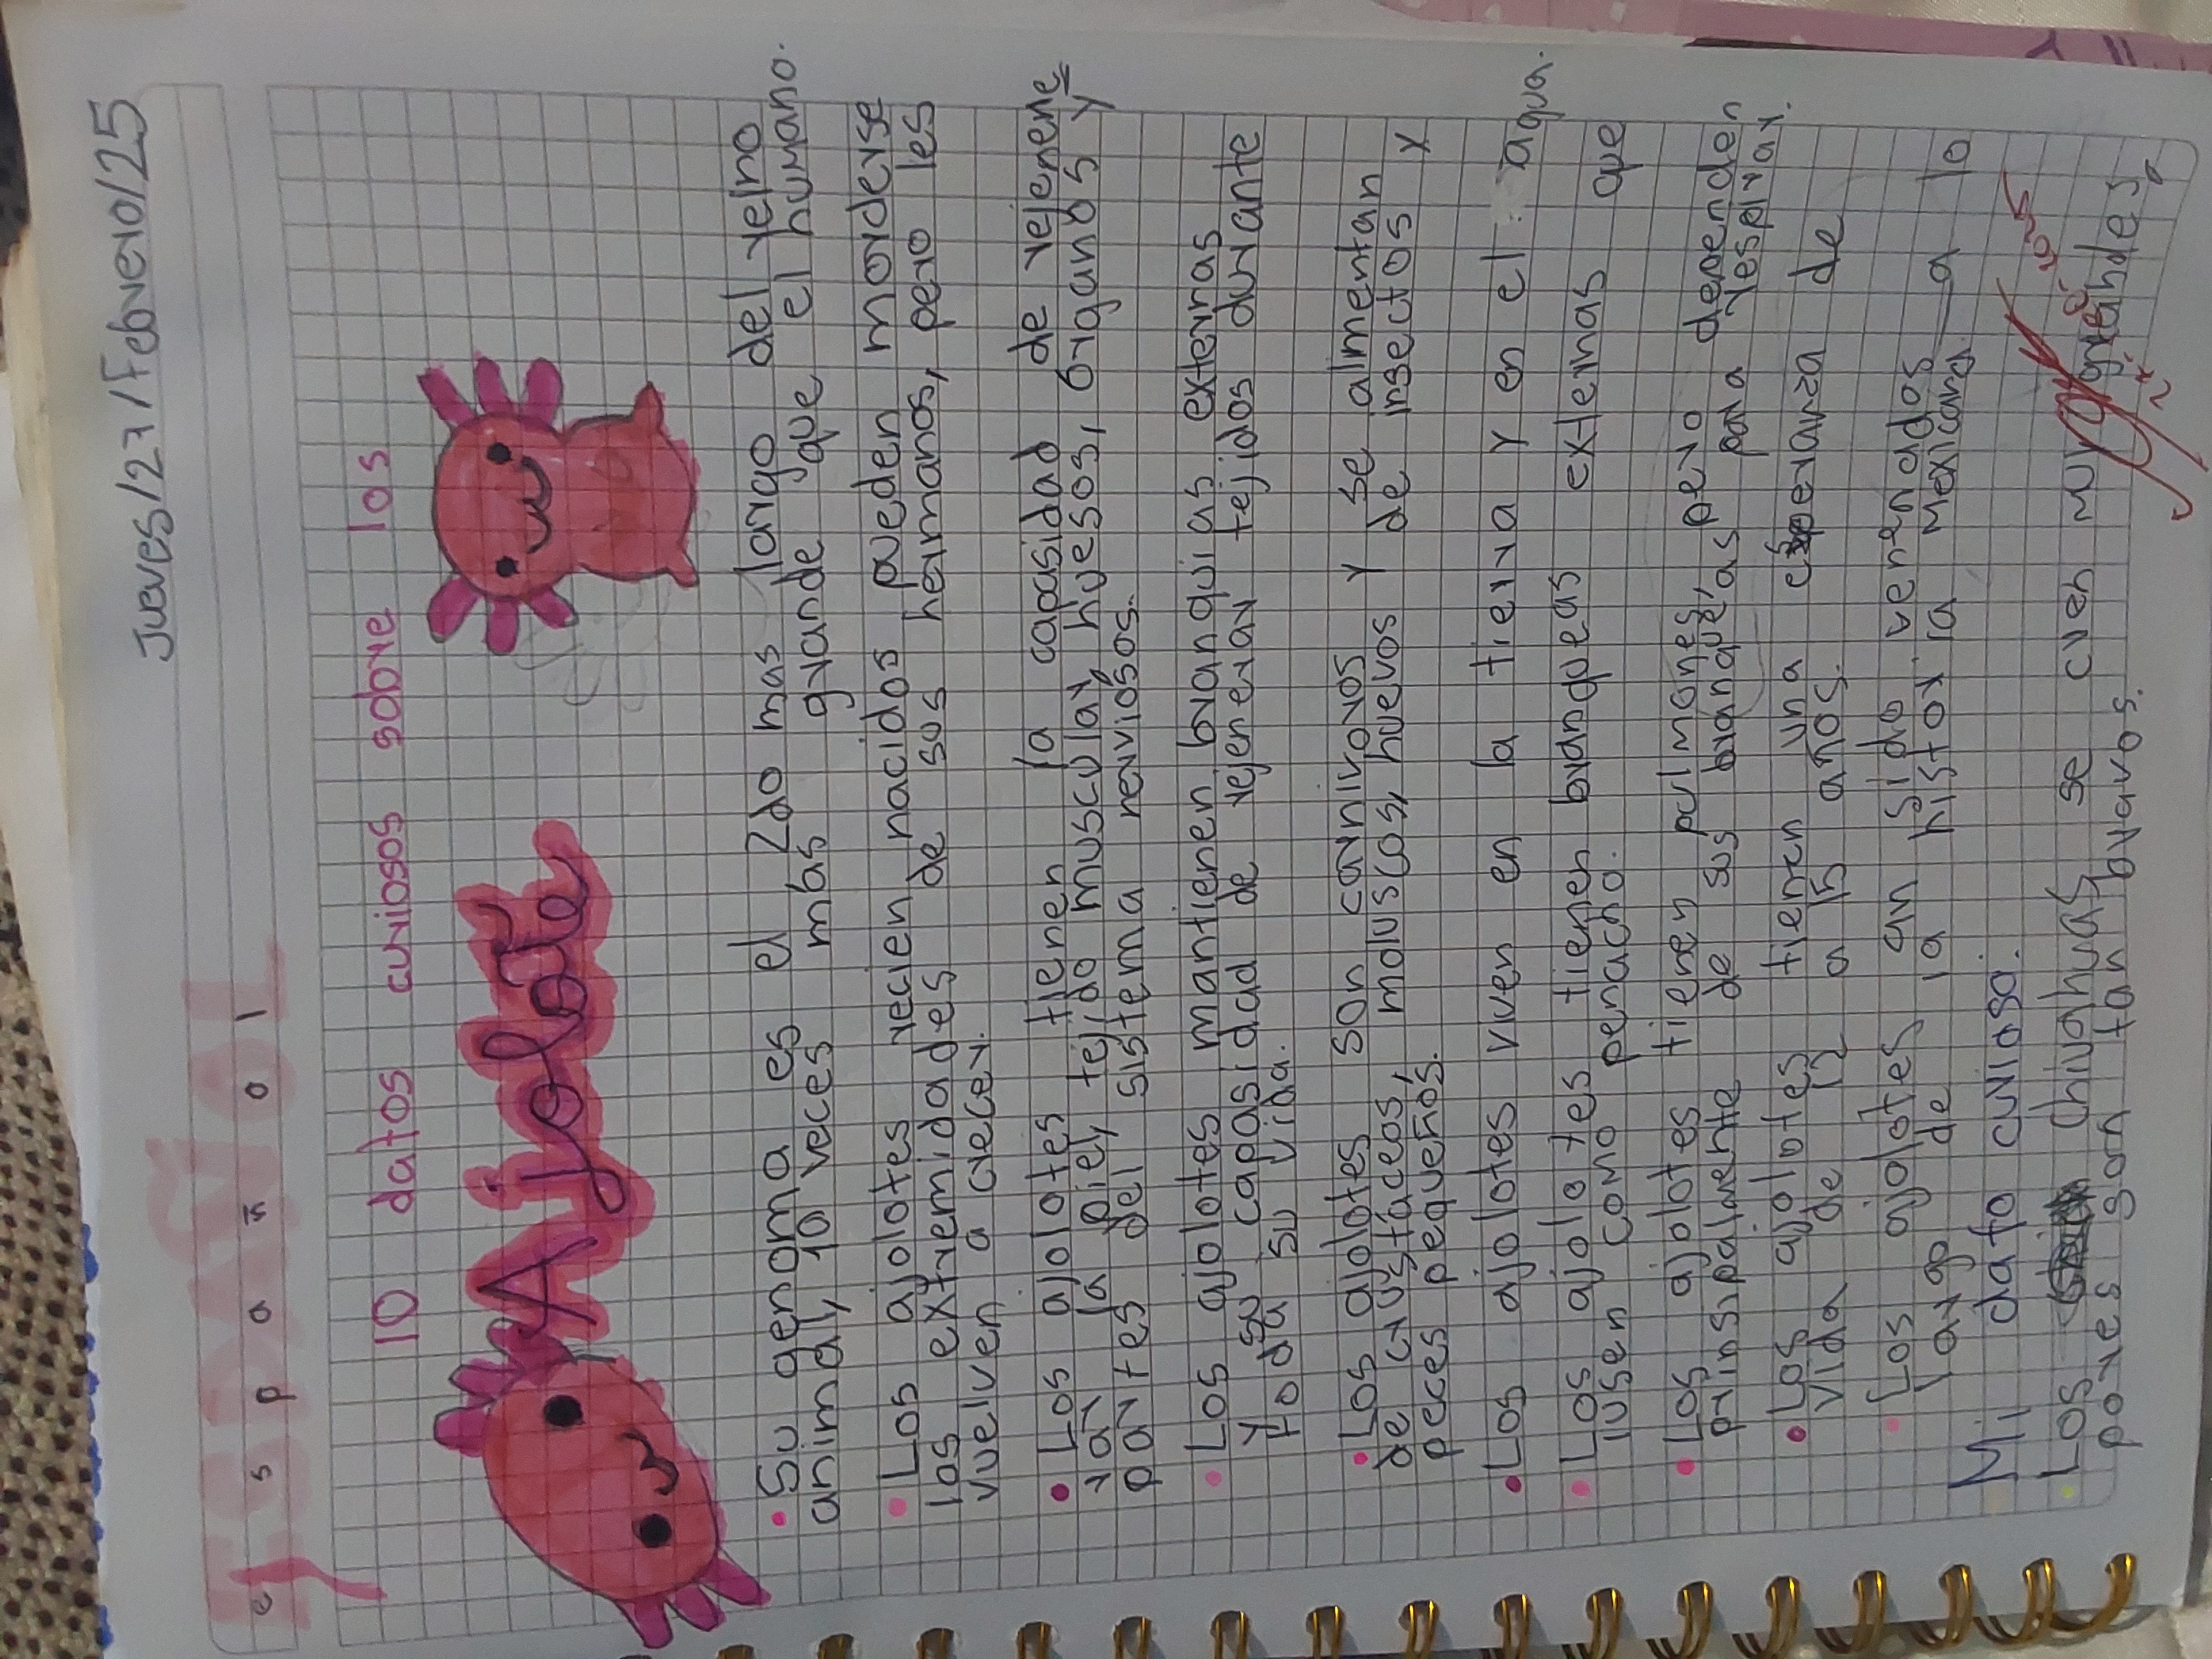 Jueves/27/Febrero/25
español
10 datos curiosos sobre los
Ajolote
• Su genoma es el 2do mas largo del reino
animal, 10 veces mas grande que el humano.
• Los ajolotes recien nacidos pueden morderse
las extremidades de sus hermanos, pero les
vuelven a crecer.
• Los ajolotes tienen la capasidad de rejene
rar la piel, tejido muscular, huesos, organos y
partes del sistema reviosos.
• Los ajolotes mantienen branquias externas
y su capasidad de rejenerar tejidos durante
toda su vida.
• Los ajolotes son carnivoros y se alimentan
de crustaceos, moluscos, huevos y de insectos y
peces pequeños.
• Los ajolotes viven en la tierra y en el agua.
• Los ajolotes tienen branqueas externas que
lusen como penacho.
• Los ajolotes tienen pulmones, pero dependen
prinsipalmente de sus branqueas para respirar.
• Los ajolotes tienen una esperanza de
vida de 12 a 15 años.
• Los ajolotes an sido venerados a lo
largo de la historia mexicana
Mi dato curioso.
• Los chivahuas se cren muy grandes
pores son tan bravos.